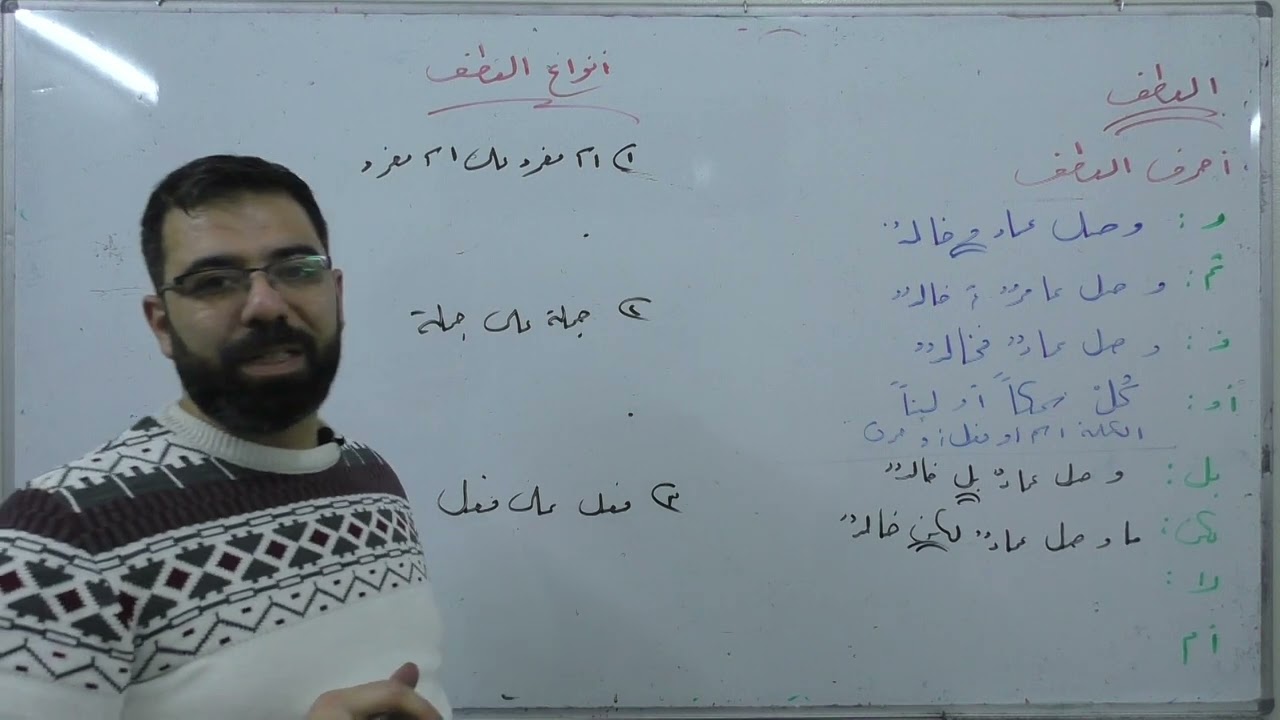 العطف
أحرف العطف
و: وصل عماد و خالدٌ
ثم: وصل عمادٌ ثم خالدٌ
فـ: وصل عمادٌ فخالدٌ
أو: كُلْ سمكاً أو لبناً
الكلمة اسم او فعل او حرف
بل: وصل عمادٌ بل خالدٌ
لكن: ما وصل عمادٌ لكن خالدٌ
لا:
أم
أنواع العطف
١) اسم مفرد على اسم مفرد
٢) جملة على جملة
٣) فعل على فعل